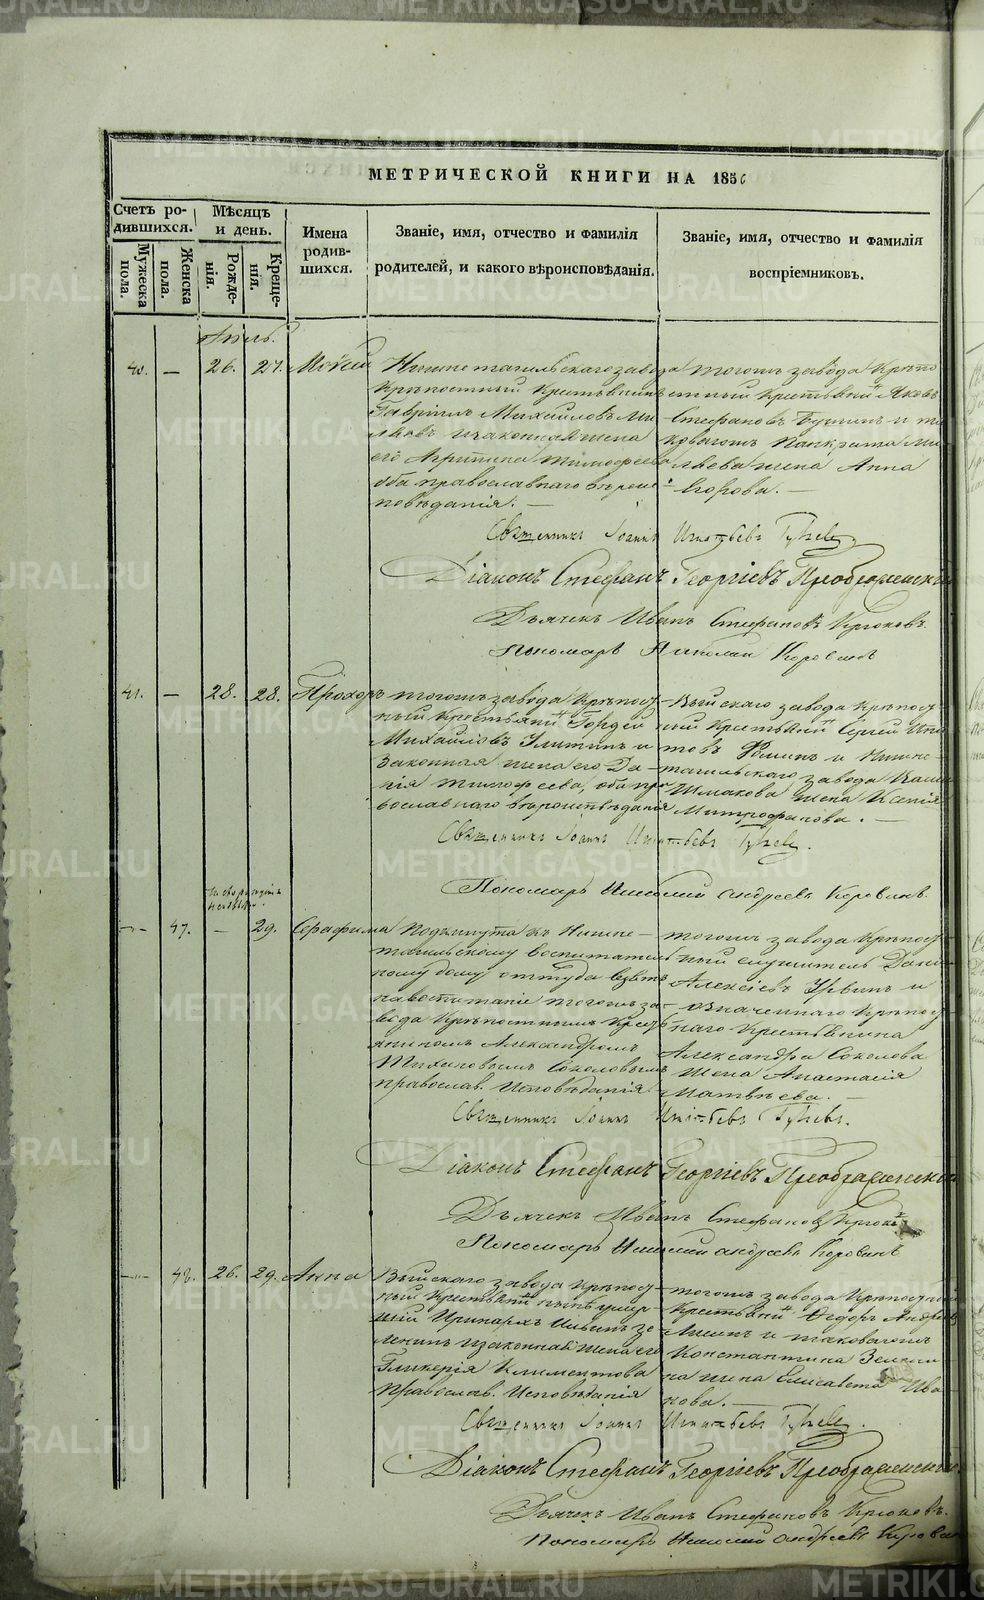 METRIKI.GASO-URAL.RU
МЕТРИЧЕСКОЙ КНИГИ НА 1856
Счетъ ро-
дившихся.
Мужеска
пола.
Женска
пола.
Мѣсяцъ
и день.
Рожде-
нія.
Креще-
нія.
Имена
родив-
шихся.
Званіе, имя, отчество и фамилія
родителей, и какого вѣроисповѣданія.
Званіе, имя, отчество и фамилія
воспріемниковъ.
40. — 26. 27. Мокій
Нижнетагильскаго завода
крѣпостный крестьянинъ
Гавріилъ Михайловъ
и законная жена
его Агрипина Тимофеева
оба православнаго вѣроис-
повѣданія. —
тогожъ завода крѣпо
стный крестьянинъ Яковъ
Стефановъ и та
коваго жъ Панкрата
жена Анна
Егорова. —
Священникъ Іоаннъ Игнатьевъ
Діаконъ Стефанъ Георгіевъ Преображенскій
Дьячекъ Иванъ Стефановъ Крюковъ.
Пономарь Николай Коровинъ
41. — 28. 28. Прохоръ
тогожъ завода крѣпост
ный крестьянинъ Гордей
Михайловъ Улитинъ и
законная жена его Да-
рія Тимофеева, оба пра
вославнаго вѣроисповѣданія
Выйскаго завода крѣпост
ный крестьянинъ Сергей
Филинъ и Нижне-
тагильскаго завода
Шмакова жена Ксенія
Митрофанова. —
Священникъ Іоаннъ Игнатьевъ
Пономарь Николай Андреевъ Коровинъ.
— 47. — 29. Серафима
Подкинута къ Нижне-
тагильскому воспитатель
ному дому, оттуда взята
на воспитаніе тогожъ за-
вода крѣпостнымъ кресть
яниномъ Александромъ
Тихоновымъ Соколовымъ
православ. исповѣданія
тогожъ завода крѣпост
ный служитель
Алексѣевъ и
означеннаго крѣпост
наго крестьянина
Александра Соколова
жена Анастасія
Матвѣева. —
Священникъ Іоаннъ Игнатьевъ
Діаконъ Стефанъ Георгіевъ Преображенскій
Дьячекъ Иванъ Стефановъ
Пономарь Николай Андреевъ Коровинъ
— 48. 26. 29. Анна
Выйскаго завода крѣпост
ный крестьянинъ нынѣ умер
шій Иринархъ Ильинъ Зе
ленинъ и законная жена его
Гликерія Климентова
православ. исповѣданія
тогожъ завода крѣпостный
крестьянинъ Ѳедоръ Андреевъ
и таковагожъ
Константина Зелени
на жена Елисавета Ива
нова. —
Священникъ Іоаннъ Игнатьевъ
Діаконъ Стефанъ Георгіевъ Преображенскій
Дьячекъ Иванъ Стефановъ Крюковъ.
Пономарь Николай Андреевъ Коровинъ